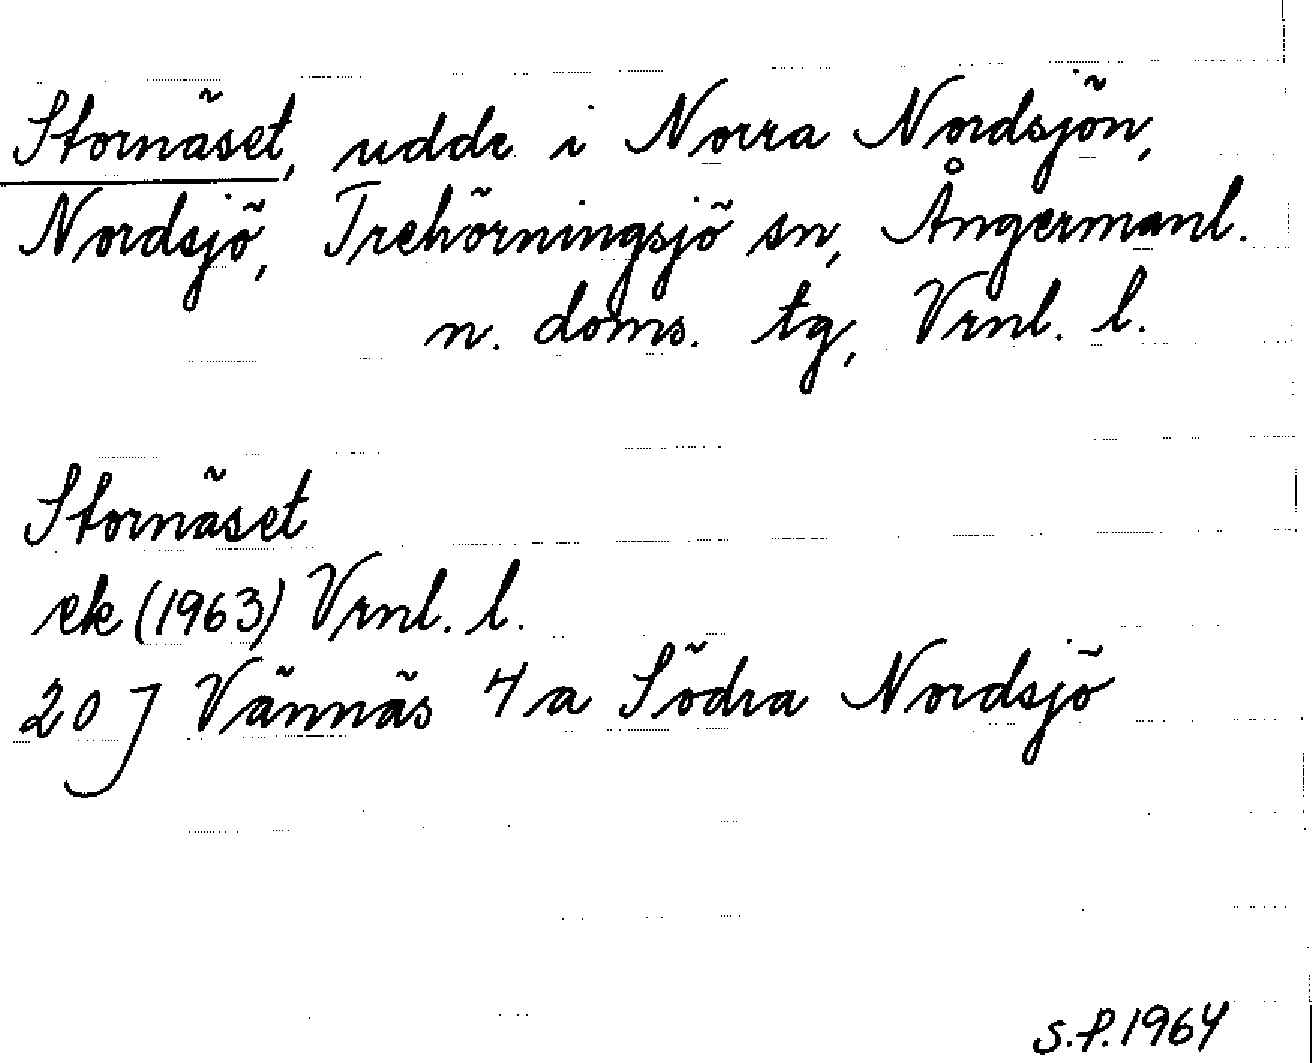 Stornäset, udde i Norra Nordsjön,
Nordsjö, Trehörningsjö sn, Ångermanl.
n. doms. tg, Vrnl. l.
Stornäset
ek (1963) Vrnl. l.
20 J Vännäs 4 a Södra Nordsjö
S.P. 1964